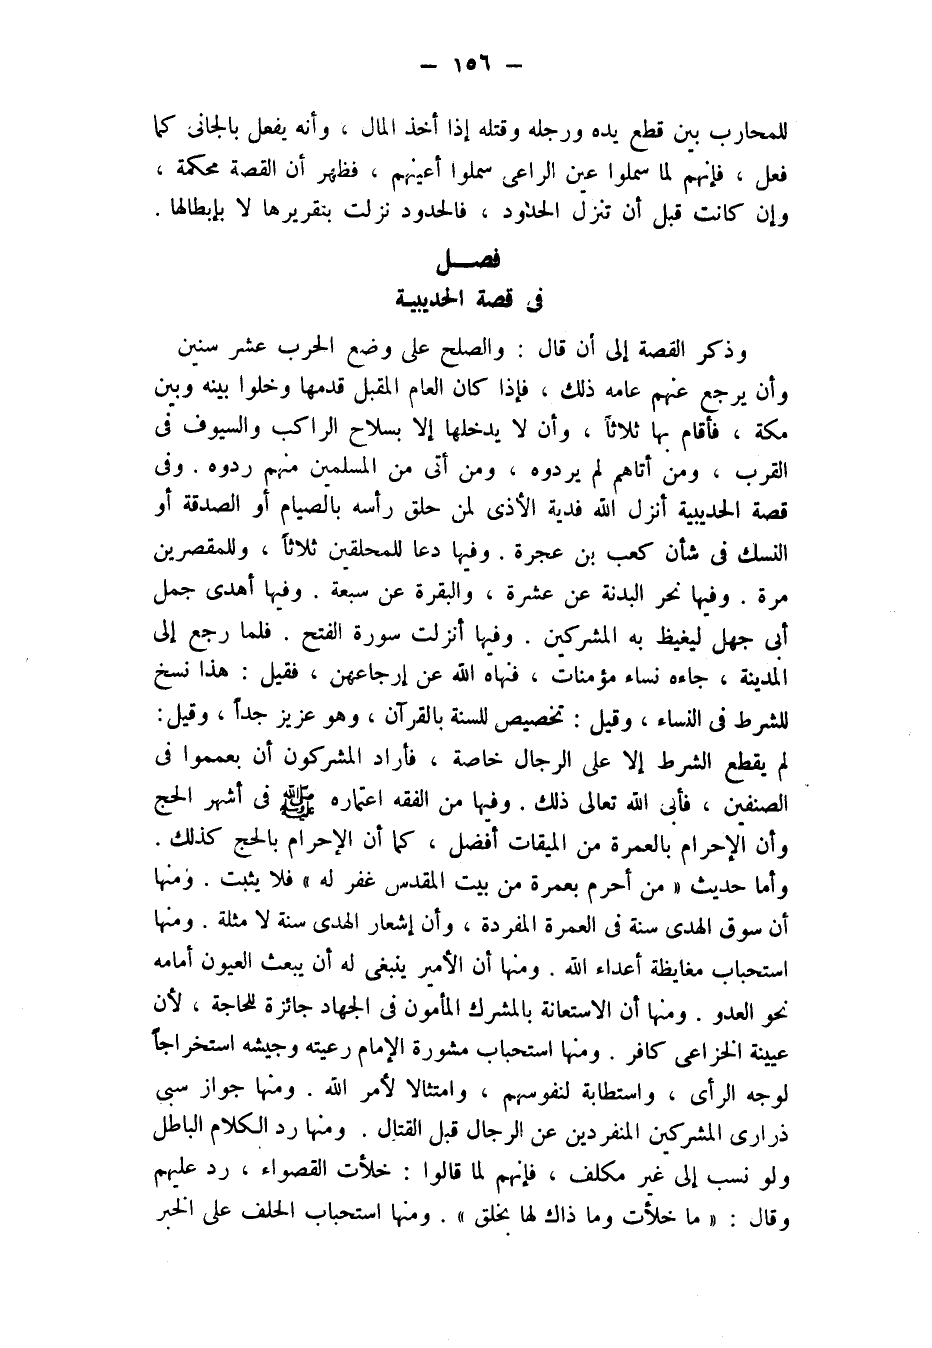 — ١٥٦ —
للمحارب بين قطع يده ورجله وقتله إذا أخذ المال ، وأنه يفعل بالجانى كما
فعل ، فإنهم لما سملوا عين الراعى سملوا أعينهم ، فظهر أن القصة محكمة ،
وإن كانت قبل أن تنزل الحدود ، فالحدود نزلت بتقريرها لا بإبطالها .
فصــل
فى قصة الحديبية
وذكر القصة إلى أن قال : والصلح على وضع الحرب عشر سنين
وأن يرجع عنهم عامه ذلك ، فإذا كان العام المقبل قدمها وخلوا بينه وبين
مكة ، فأقام بها ثلاثاً ، وأن لا يدخلها إلا بسلاح الراكب والسيوف فى
القرب ، ومن أتاهم لم يردوه ، ومن أتى من المسلمين منهم ردوه . وفى
قصة الحديبية أنزل الله فدية الأذى لمن حلق رأسه بالصيام أو الصدقة أو
النسك فى شأن كعب بن عجرة . وفيها دعا للمحلقين ثلاثاً ، وللمقصرين
مرة . وفيها نحر البدنة عن عشرة ، والبقرة عن سبعة . وفيها أهدى جمل
أبى جهل ليغيظ به المشركين . وفيها أنزلت سورة الفتح . فلما رجع إلى
المدينة ، جاءه نساء مؤمنات ، فنهاه الله عن إرجاعهن ، فقيل : هذا نسخ
للشرط فى النساء ، وقيل : تخصيص للسنة بالقرآن ، وهو عزيز جداً ، وقيل:
لم يقطع الشرط إلا على الرجال خاصة ، فأراد المشركون أن يعمموا فى
الصنفين ، فأبى الله تعالى ذلك . وفيها من الفقه اعتماره ﷺ فى أشهر الحج
وأن الإحرام بالعمرة من الميقات أفضل ، كما أن الإحرام بالحج كذلك .
وأما حديث « من أحرم بعمرة من بيت المقدس غفر له » فلا يثبت . ومنها
أن سوق الهدى سنة فى العمرة المفردة ، وأن إشعار الهدى سنة لا مثلة . ومنها
استحباب مغايظة أعداء الله . ومنها أن الأمير ينبغى له أن يبعث العيون أمامه
نحو العدو . ومنها أن الاستعانة بالمشرك المأمون فى الجهاد جائزة للحاجة ، لأن
عيينة الخزاعى كافر . ومنها استحباب مشورة الإمام رعيته وجيشه استخراجاً
لوجه الرأى ، واستطابة لنفوسهم ، وامتثالا لأمر الله . ومنها جواز سبى
ذرارى المشركين المنفردين عن الرجال قبل القتال . ومنها رد الكلام الباطل
ولو نسب إلى غير مكلف ، فإنهم لما قالوا : خلأت القصواء ، رد عليهم
وقال : « ما خلأت وما ذاك لها بخلق » . ومنها استحباب الحلف على الخبر